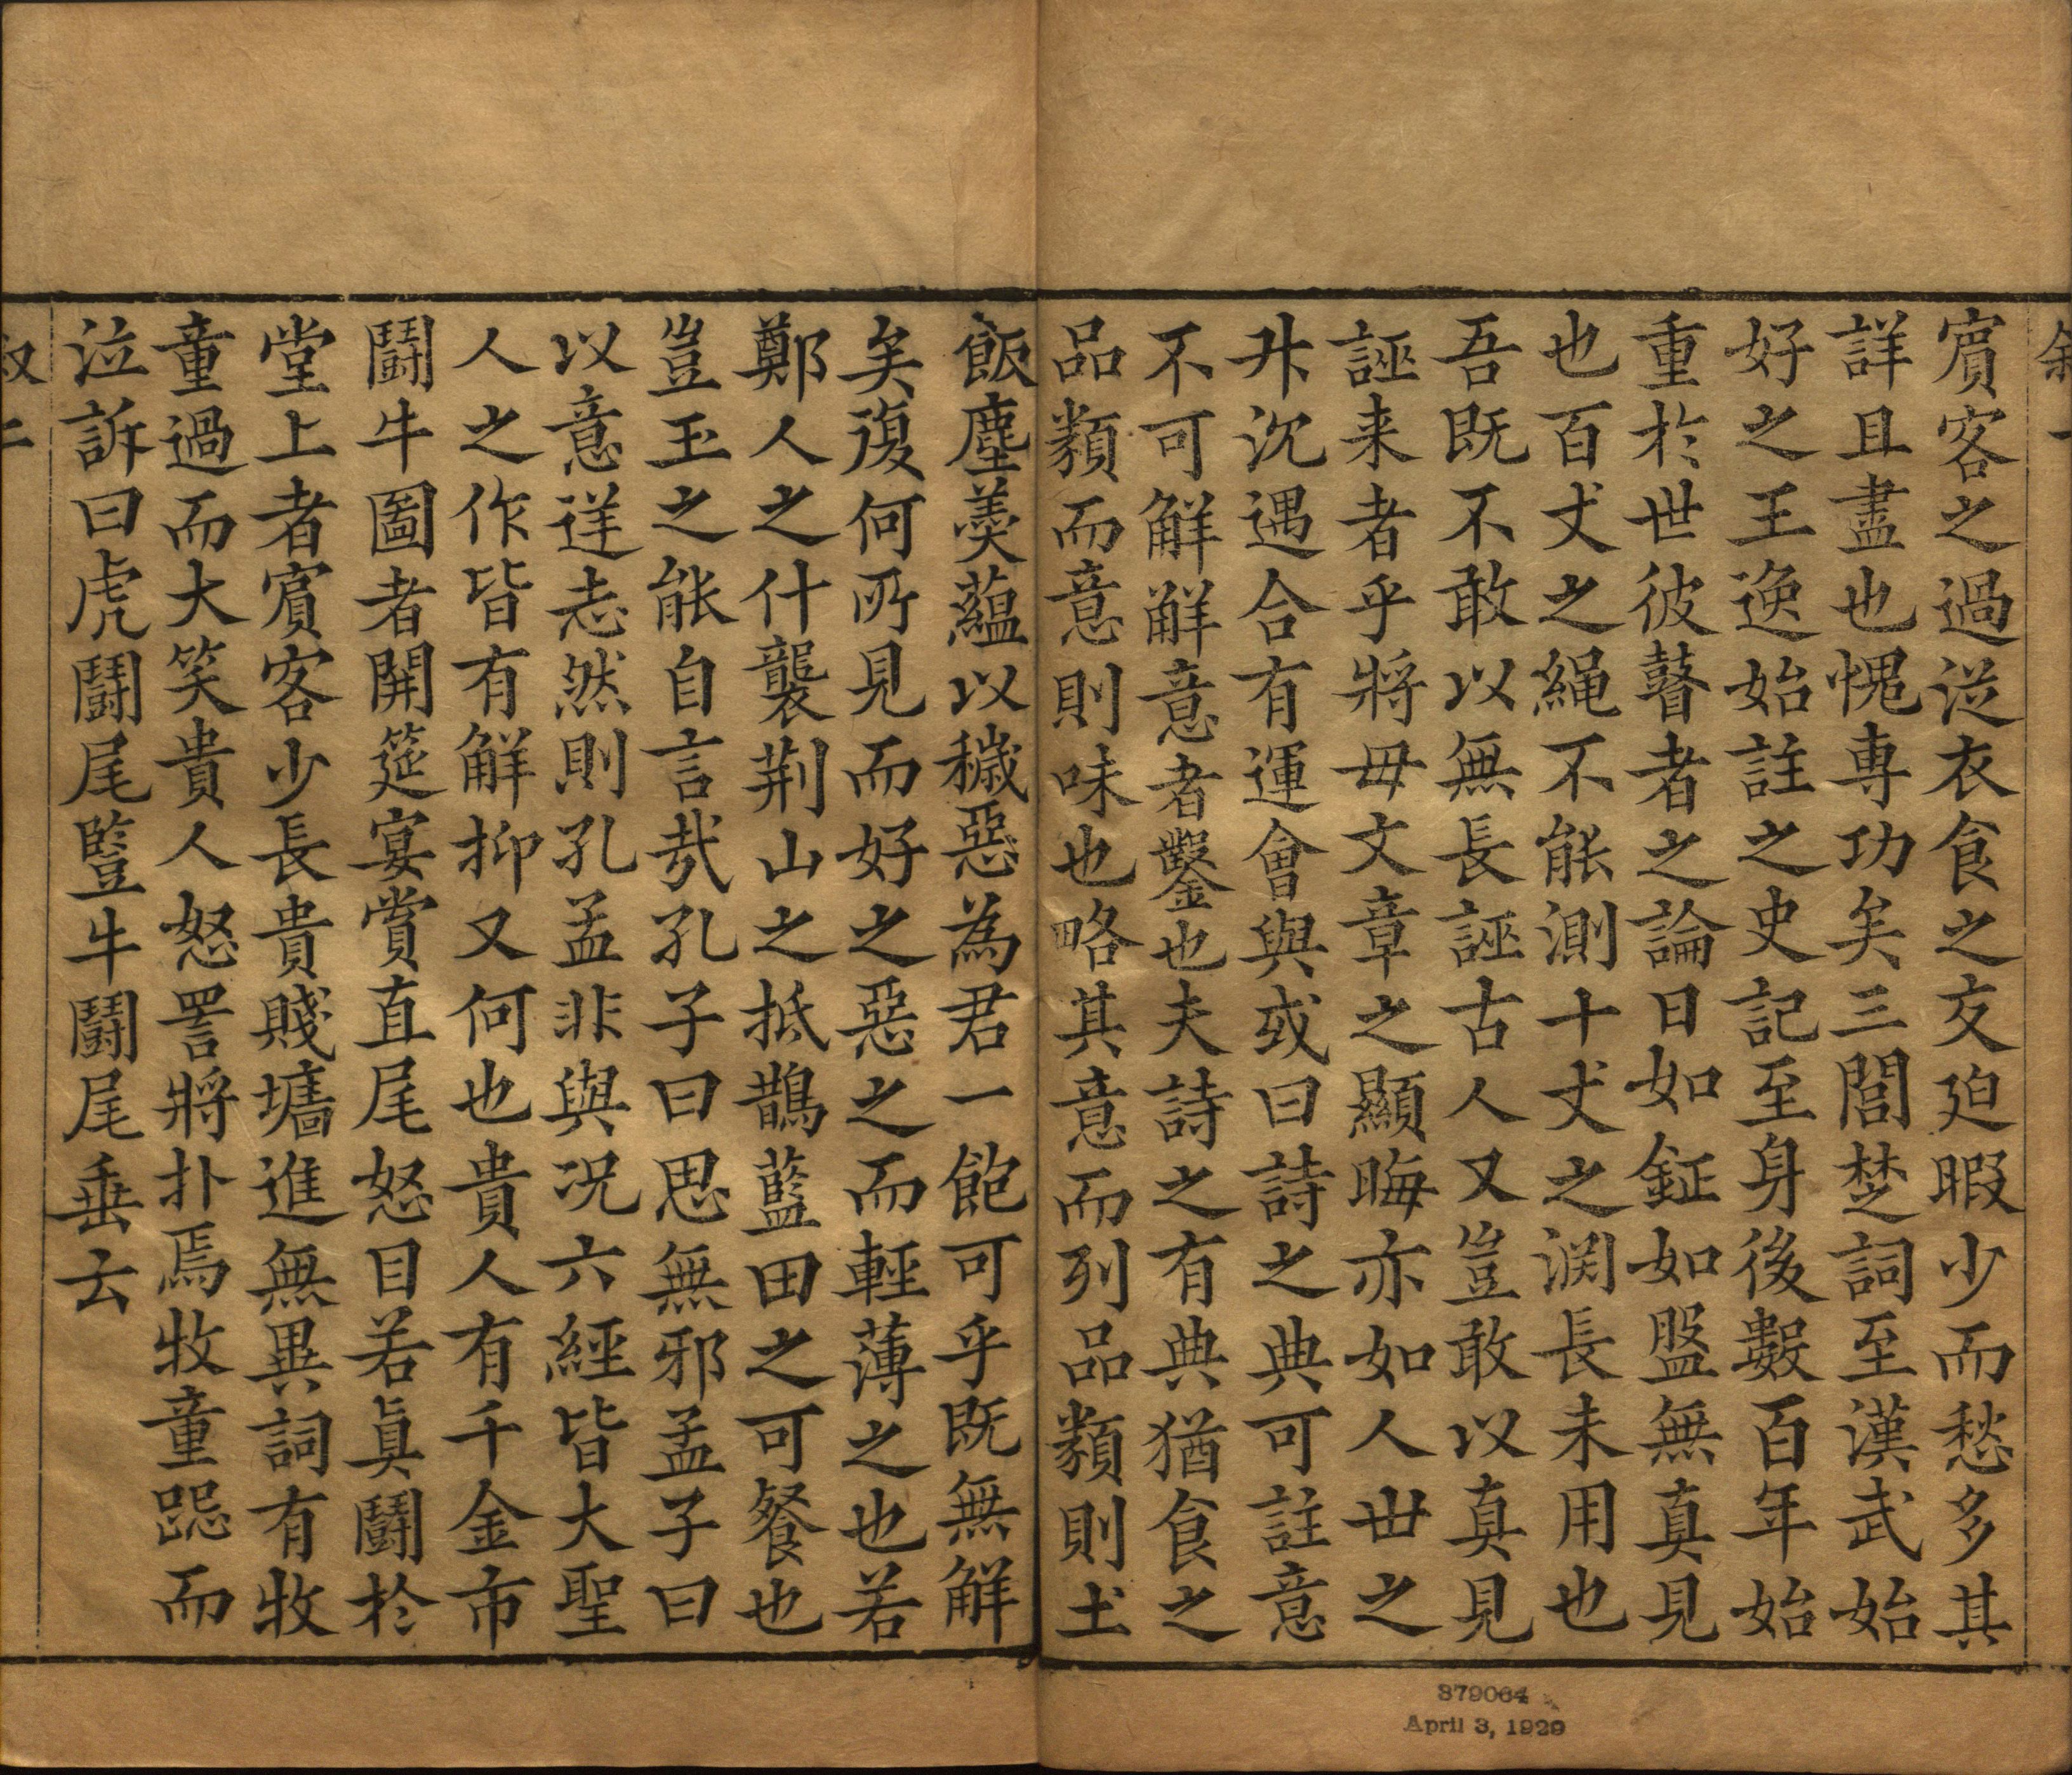 敘一
賔客之過從衣食之交廹暇少而愁多其
詳且盡也愧専功矣三閭楚詞至漢武始
好之王逸始註之史記至身後數百年始
重於世彼瞽者之論日如鉦如盤無真見
也百丈之繩不能測十丈之渕長未用也
吾既不敢以無長誣古人又豈敢以真見
誣来者乎將毋文章之顯晦亦如人世之
升沉遇合有運會與或曰詩之典可註意
不可觧觧意者鑿也夫詩之有典猶食之
品類而意則味也略其意而列品類則土
飯塵羮蘊以穢惡為君一飽可乎既無觧
矣復何所見而好之惡之而輕薄之也若
鄭人之什襲荆山之抵鵲藍田之可餐也
豈玉之能自言㢤孔子曰思無邪孟子曰
以意逆志然則孔孟非與况六經皆大聖
人之作皆有觧抑又何也貴人有千金市
鬭牛圖者開筵宴賞直尾怒目若眞鬭於
堂上者賔客少長貴賤墻進無異詞有牧
童過而大笑貴人怒詈將扑焉牧童跽而
泣訴曰虎鬭尾豎牛鬭尾垂云
敘二
379064
April 3, 1929